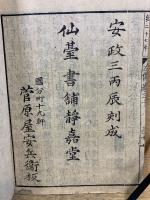 安政三丙辰刻成
仙臺書舗靜嘉堂
國分町十九軒
菅原屋安兵衛板